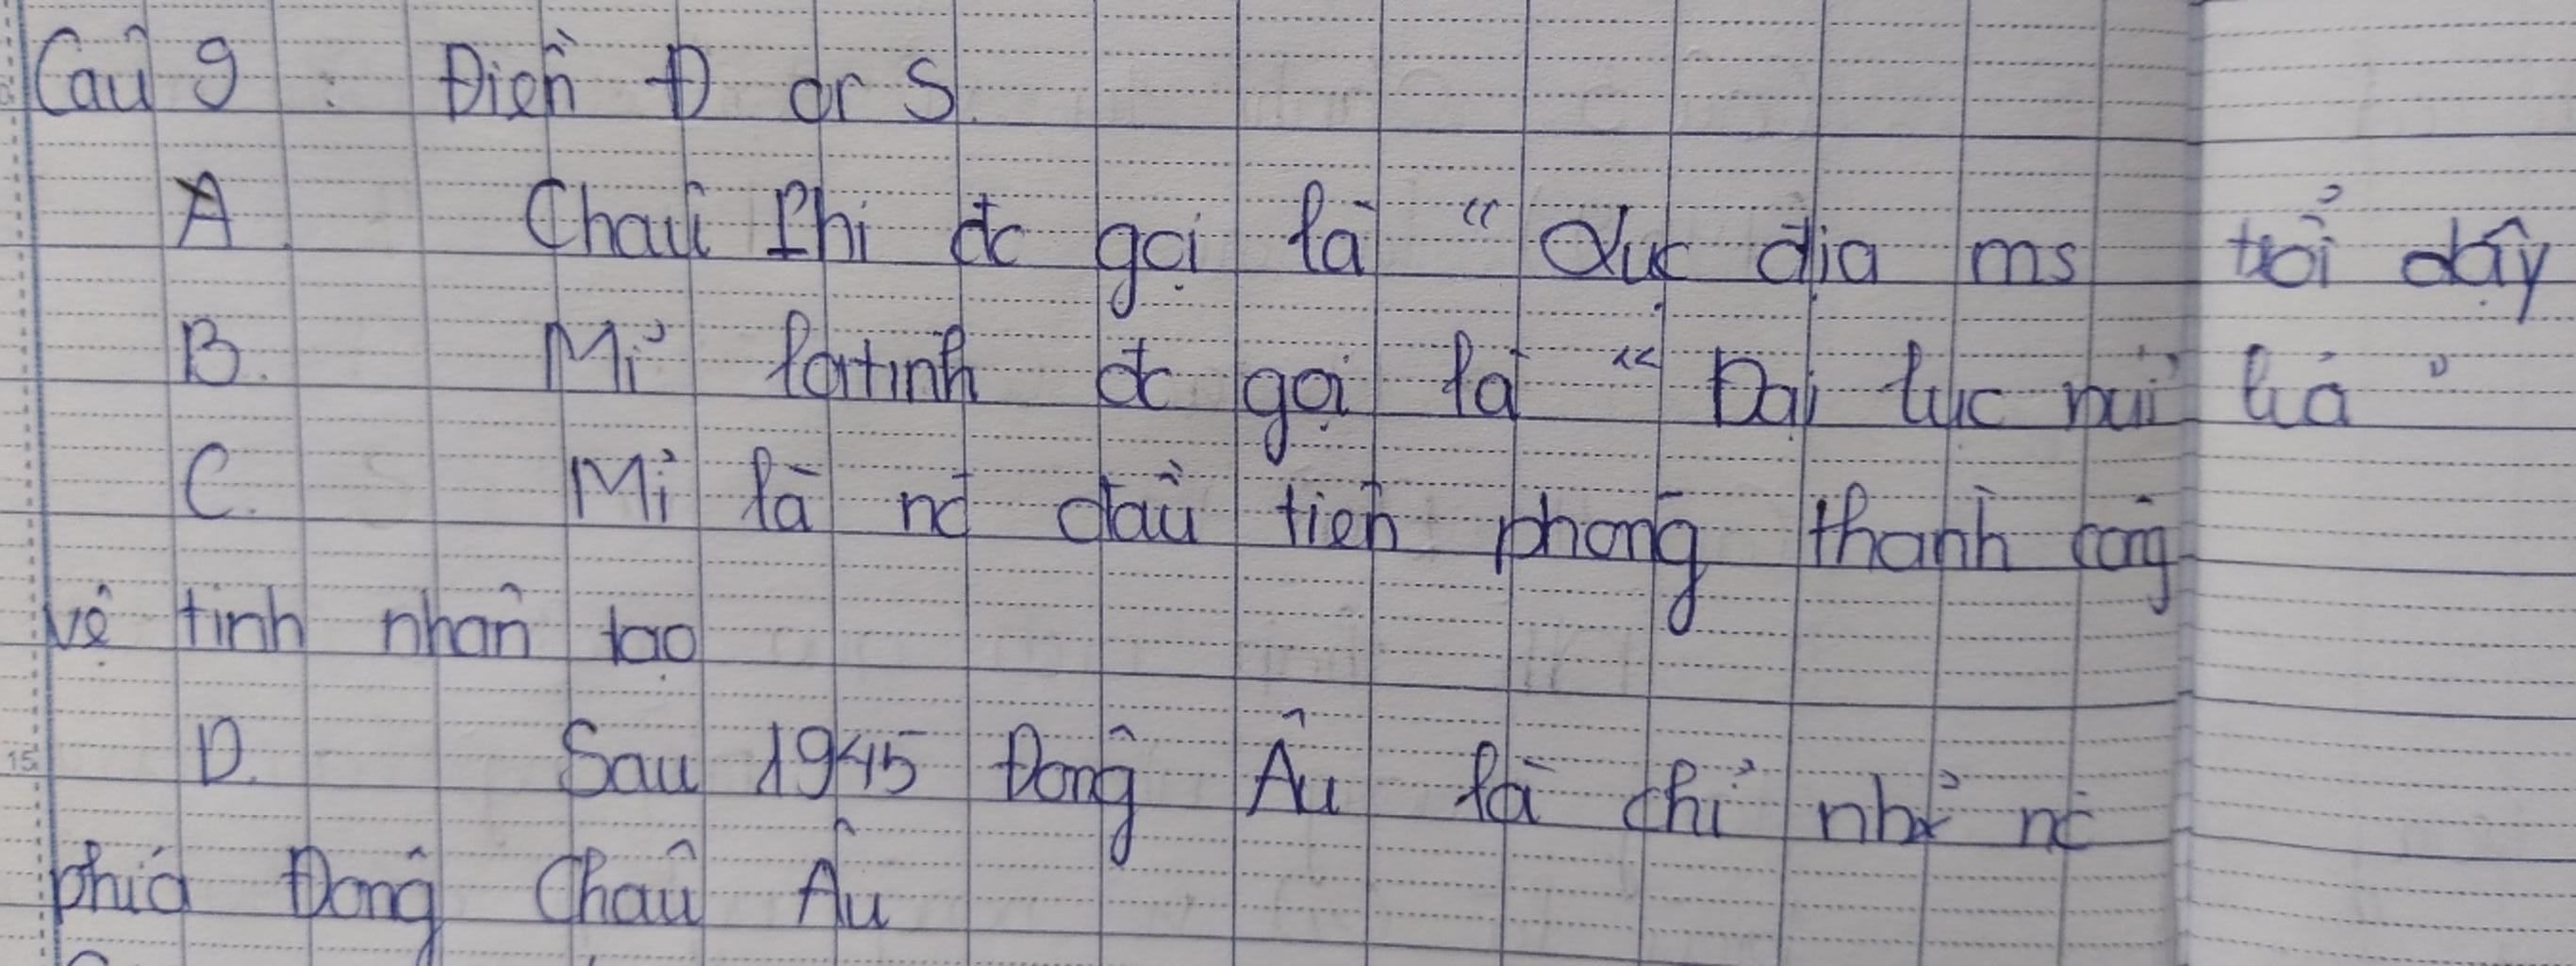 Câu 9 : Điền Đ or S.
A. Châu Phi đc gọi là " Lục địa ms trỗi dậy
B. Mĩ latinh đc gọi là " Đại lục núi lửa "
C. Mĩ là nc đầu tiên phóng thành công
vệ tinh nhân tạo
D. Sau 1945 Đông Âu là chỉ nh~ nc
phía Đông Châu Âu